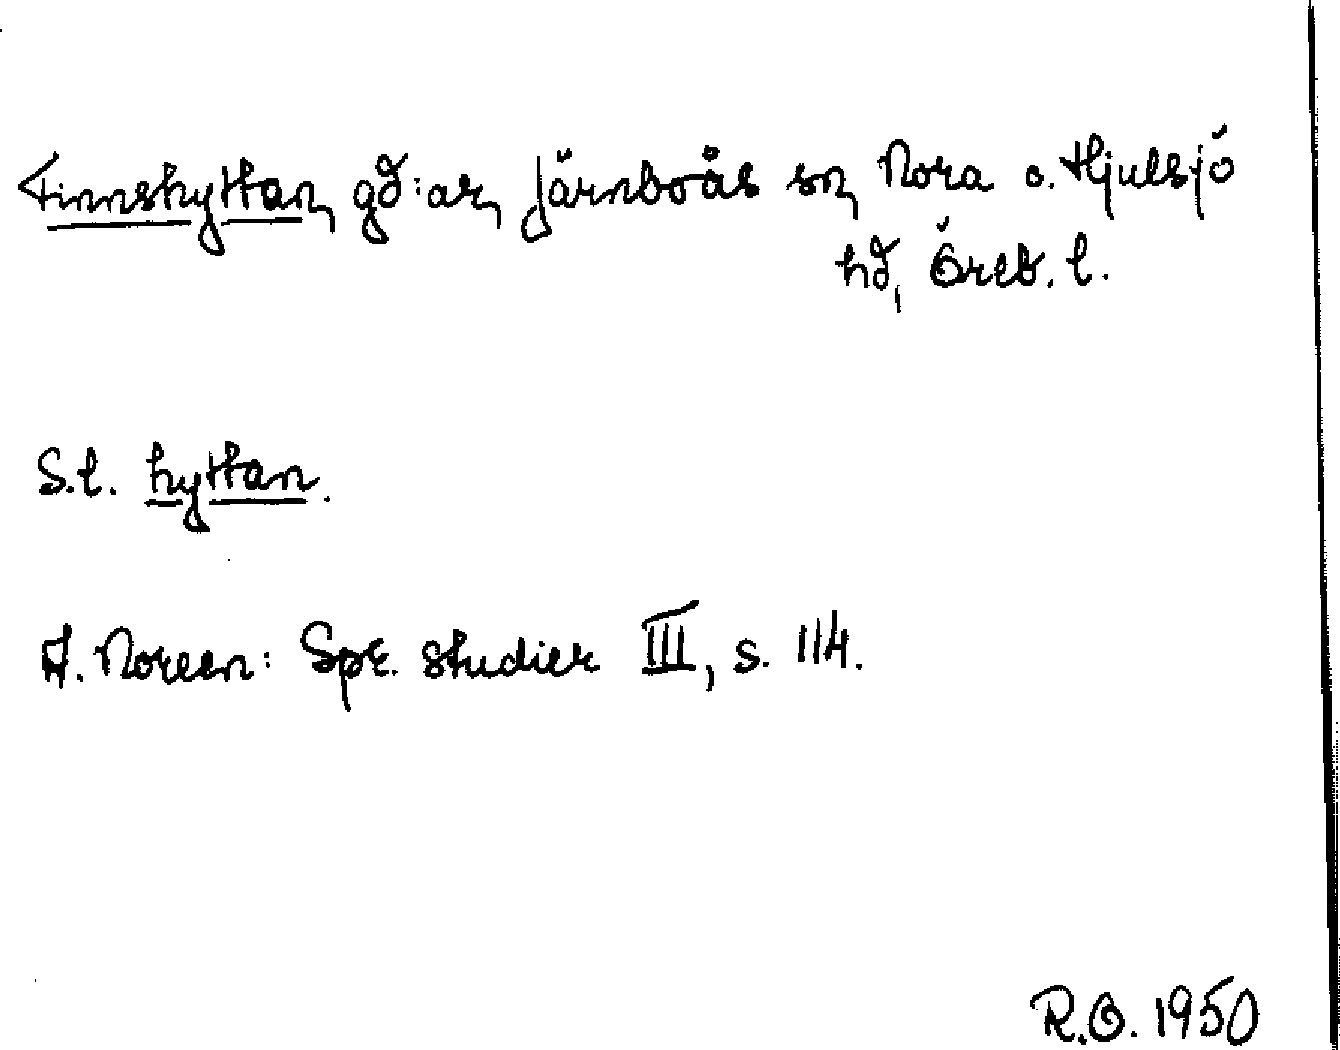 Finnshyttan, gd:ar, Järnboås sn, Nora o. Hjulsjö
hd, Öreb. l.
S.l. hyttan.
A. Noreen: Spr. studier III, s. 114.
R.O. 1950